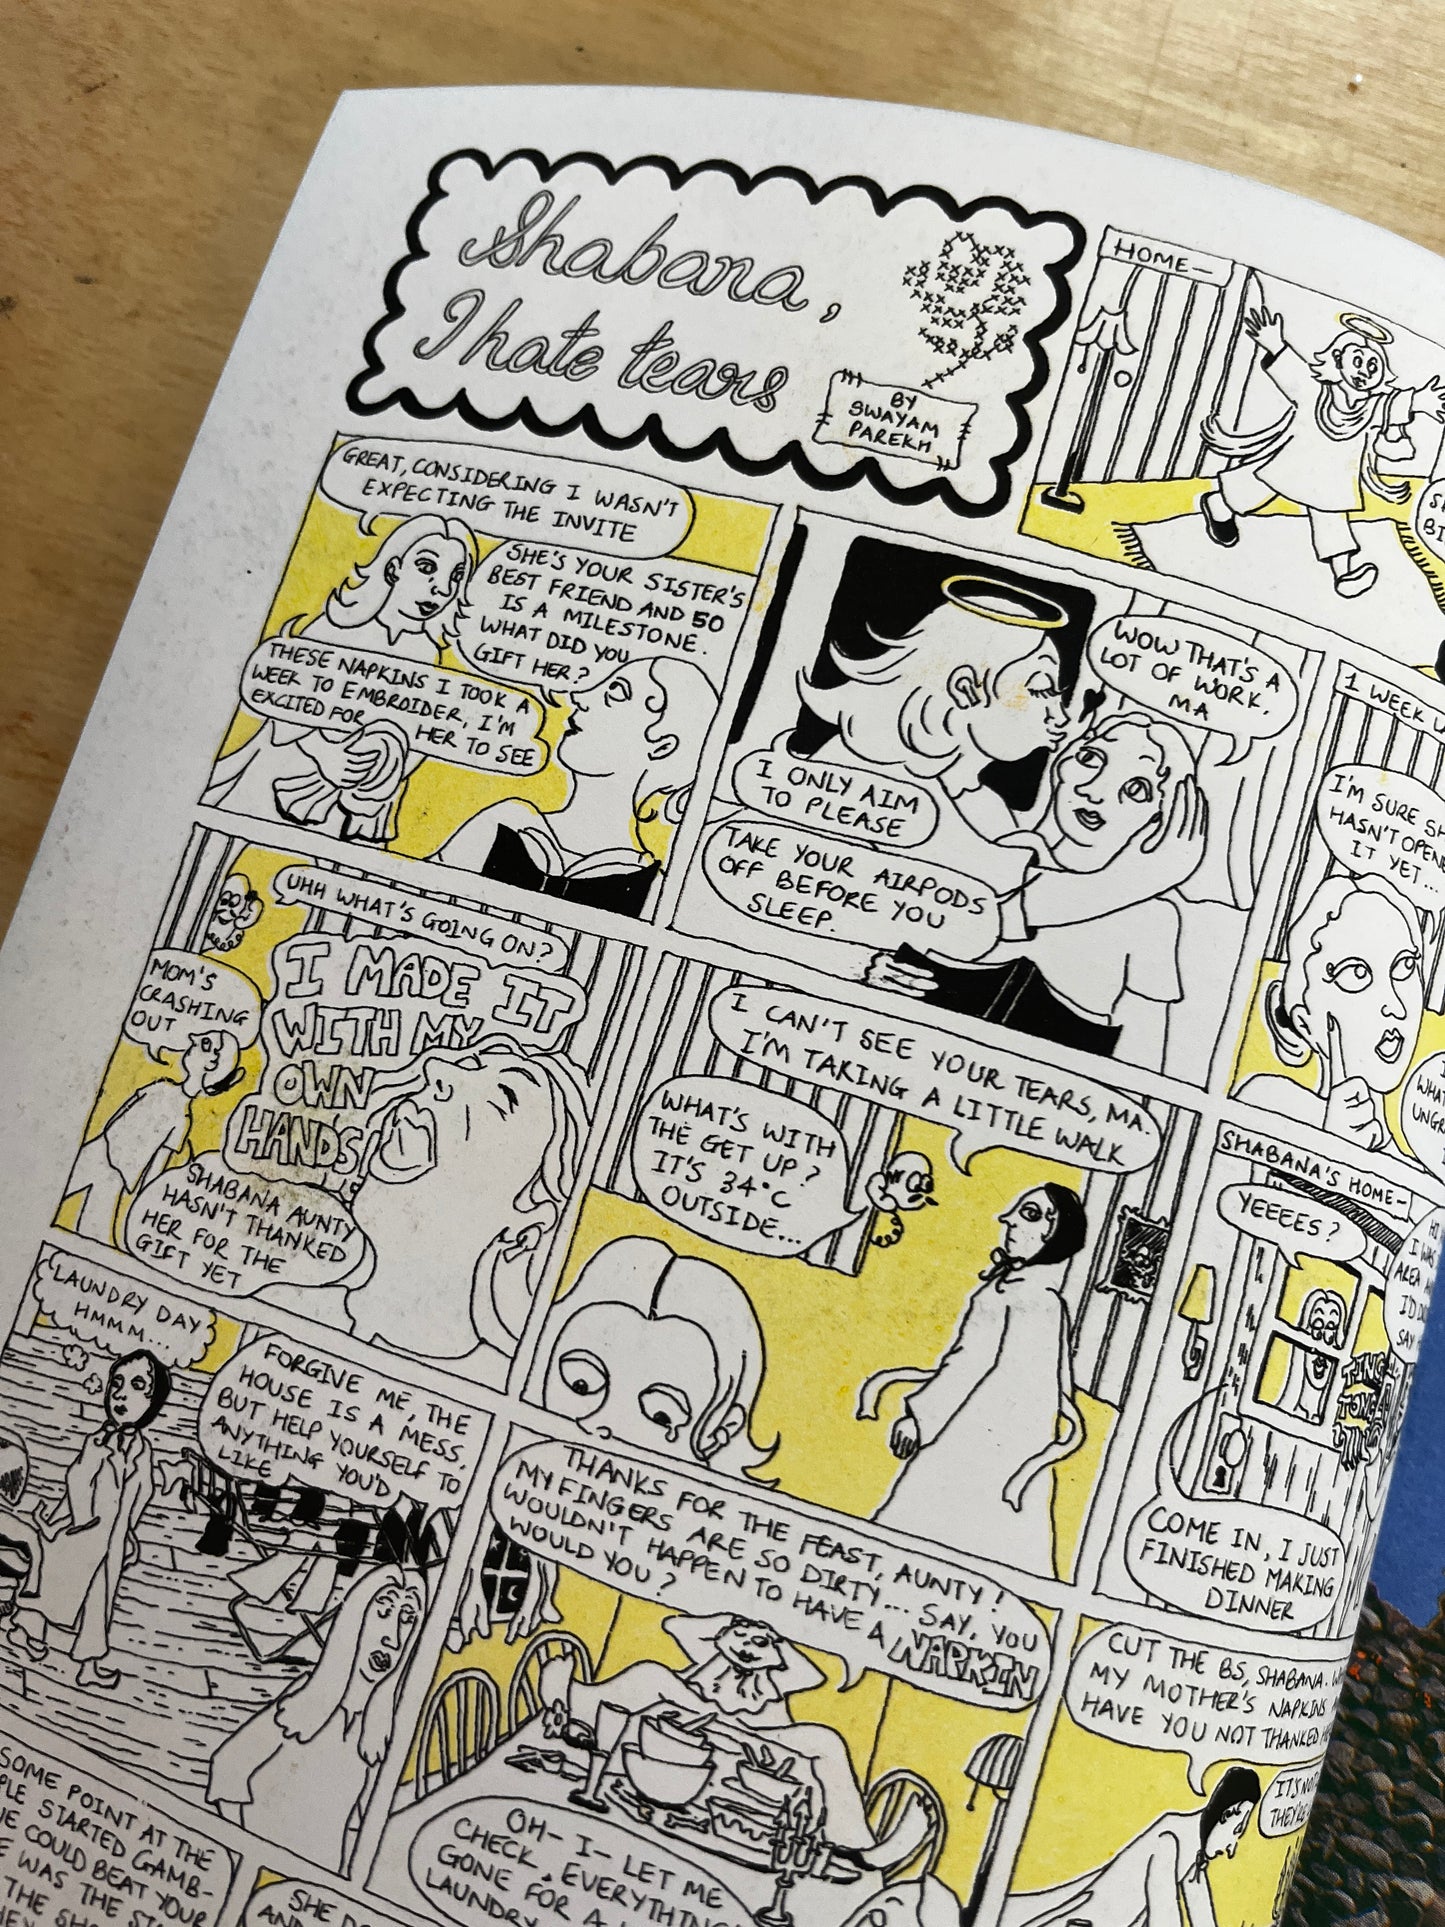 Shabana,
I hate tears
BY
SWAYAM
PAREKH
HOME—
GREAT, CONSIDERING I WASN'T
EXPECTING THE INVITE
SHE'S YOUR SISTER'S
BEST FRIEND AND 50
IS A MILESTONE.
WHAT DID YOU
GIFT HER?
THESE NAPKINS I TOOK A
WEEK TO EMBROIDER, I'M
EXCITED FOR HER TO SEE
WOW THAT'S A
LOT OF WORK,
MA
I ONLY AIM
TO PLEASE
TAKE YOUR AIRPODS
OFF BEFORE YOU
SLEEP.
1 WEEK
I'M SURE
HASN'T
IT YET...
UHH WHAT'S GOING ON?
MOM'S
CRASHING
OUT
I MADE IT
WITH MY
OWN
HANDS!
SHABANA AUNTY
HASN'T THANKED
HER FOR THE
GIFT YET
I CAN'T SEE YOUR TEARS, MA.
I'M TAKING A LITTLE WALK
WHAT'S WITH
THE GET UP?
IT'S 34°C
OUTSIDE...
SHABANA'S HOME—
YEEEES?
TING
TONG
COME IN, I JUST
FINISHED MAKING
DINNER
LAUNDRY DAY
HMMM...
FORGIVE ME, THE
HOUSE IS A MESS,
BUT HELP YOURSELF TO
ANYTHING YOU'D
LIKE
THANKS FOR THE FEAST, AUNTY!
MY FINGERS ARE SO DIRTY... SAY, YOU
WOULDN'T HAPPEN TO HAVE A NAPKIN
WOULD YOU?
OH— I— LET ME
CHECK, EVERYTHING
GONE FOR A
LAUNDRY
CUT THE BS, SHABANA.
MY MOTHER'S NAPKINS
HAVE YOU NOT THANKED
SOME POINT AT THE
STARTED GAMB-
COULD BEAT YOUR
WAS THE
THE
SHE